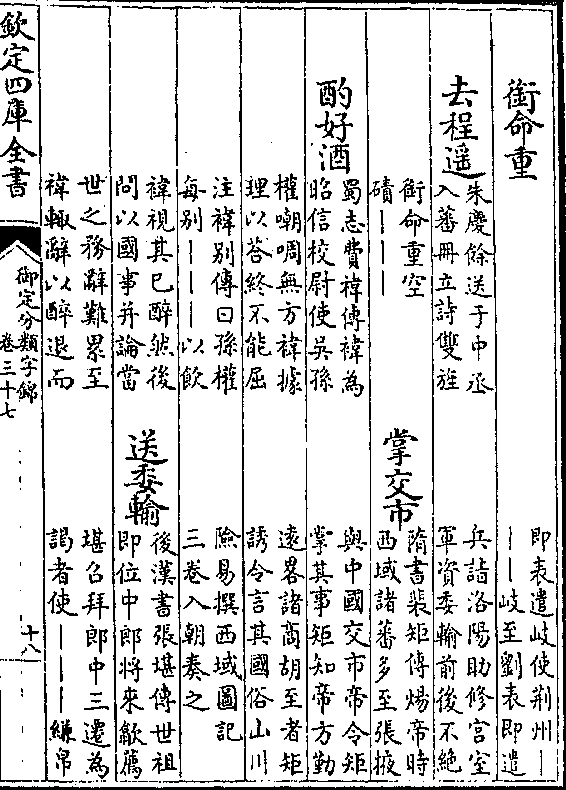 即表遣岐使荆州—
銜命重
——岐至劉表即遣
去程遥
朱慶餘送于中丞
入蕃冊立詩雙旌
兵詣洛陽助修宫室
軍資委輸前後不絶
銜命重空
磧———
掌交市
隋書裴矩傳煬帝時
西域諸蕃多至張掖
酌好酒
蜀志費禕傳禕為
昭信校尉使吳孫
與中國交市帝令矩
掌其事矩知帝方勤
權嘲啁無方禕據
理以荅終不能屈
遠畧諸商胡至者矩
誘令言其國俗山川
注禕别傳曰孫權
每别———以飲
險易撰西域圖記
三卷入朝奏之
禕視其已醉然後
問以國事并論當
送委輸
後漢書張堪傳世祖
即位中郎將來歙薦
世之務辭難累至
禕輙辭以醉退而
堪召拜郎中三遷為
謁者使———縑帛
欽定四庫全書
御定分類字錦
卷三十七
十八